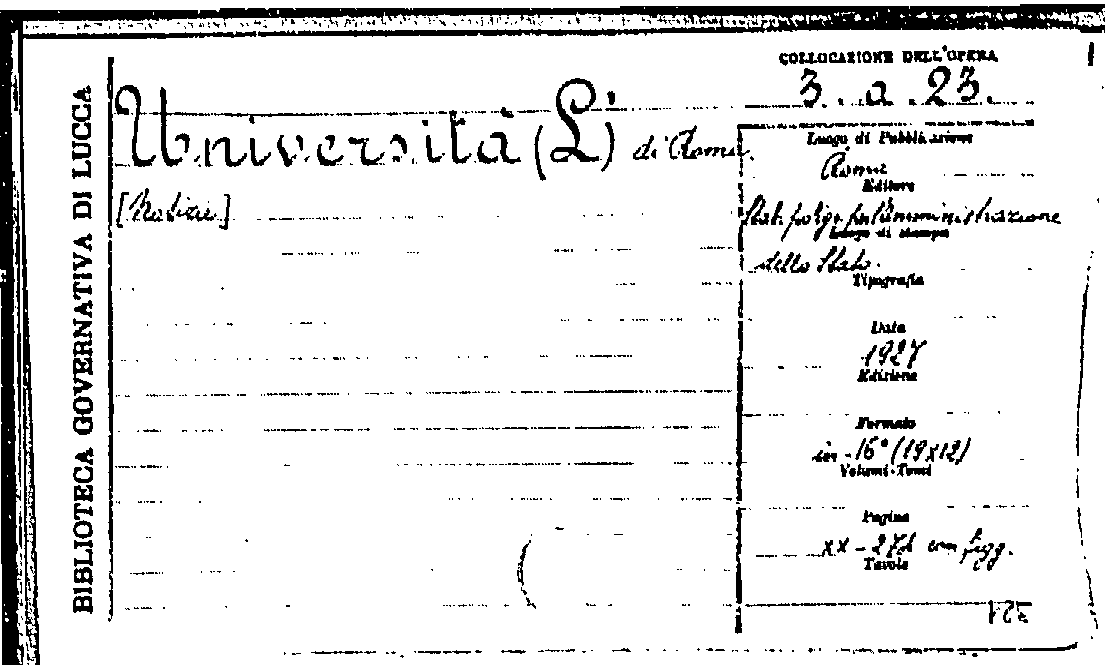 BIBLIOTECA GOVERNATIVA DI LUCCA
COLLOCAZIONE DELL'OPERA
3. a. 23.
Università (L') di Roma.
[Notizie]
Luogo di Pubblicazione
Roma
Editore
Stab. poligr. per l'amministrazione
Luogo di stampa
dello Stato.
Tipografia
Data
1927
Edizione
Formato
in-16° (19x12)
Volumi-Tomi
Pagine
XX - con figg.
Tavole